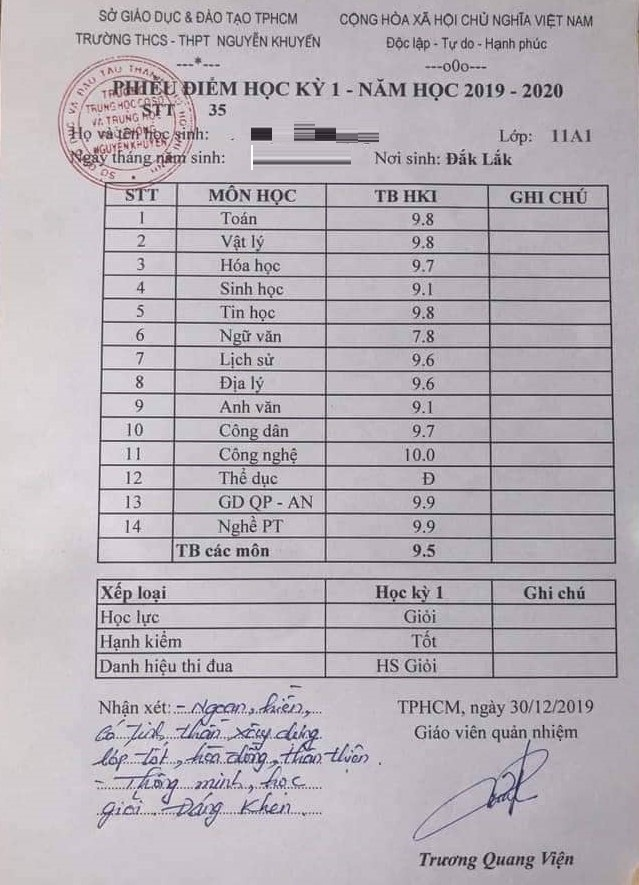 SỞ GIÁO DỤC & ĐÀO TẠO TPHCM
TRƯỜNG THCS - THPT NGUYỄN KHUYẾN
---*---
CỘNG HÒA XÃ HỘI CHỦ NGHĨA VIỆT NAM
Độc lập - Tự do - Hạnh phúc
---o0o---
PHIẾU ĐIỂM HỌC KỲ 1 - NĂM HỌC 2019 - 2020
STT 35
Họ và tên học sinh: Lớp: 11A1
Ngày tháng năm sinh: Nơi sinh: Đắk Lắk
TRƯỜNG
TRUNG HỌC CƠ SỞ
VÀ TRUNG HỌC
PHỔ THÔNG
NGUYỄN KHUYẾN
STT MÔN HỌC TB HKI GHI CHÚ
1 Toán 9.8
2 Vật lý 9.8
3 Hóa học 9.7
4 Sinh học 9.1
5 Tin học 9.8
6 Ngữ văn 7.8
7 Lịch sử 9.6
8 Địa lý 9.6
9 Anh văn 9.1
10 Công dân 9.7
11 Công nghệ 10.0
12 Thể dục Đ
13 GD QP - AN 9.9
14 Nghề PT 9.9
TB các môn 9.5
Xếp loại Học kỳ 1 Ghi chú
Học lực Giỏi
Hạnh kiểm Tốt
Danh hiệu thi đua HS Giỏi
Nhận xét: - Ngoan, hiền,
có tinh thần xây dựng
lớp tốt, hòa đồng, thân thiện.
- Thông minh, học
giỏi. Đáng khen
TPHCM, ngày 30/12/2019
Giáo viên quản nhiệm
Trương Quang Viện